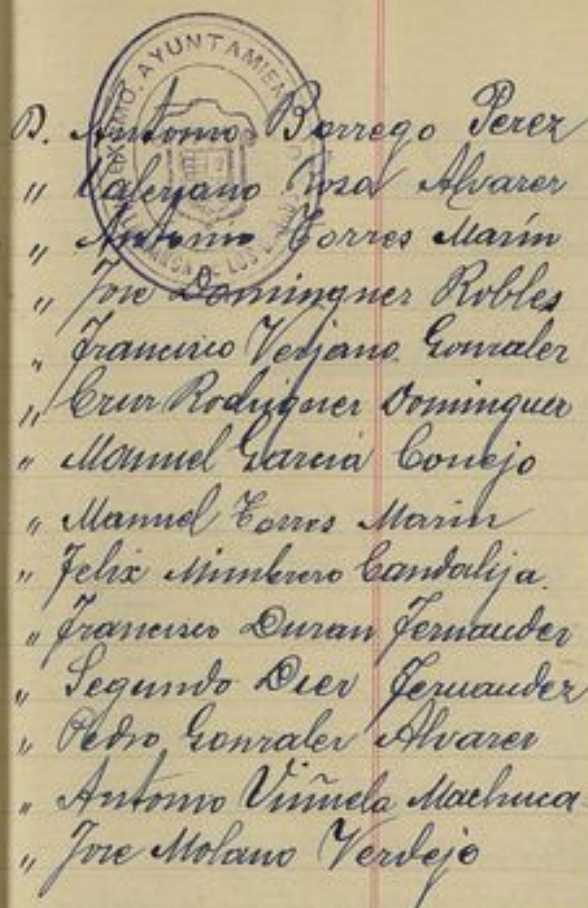 AYUNTAMIEN
D. Antonio Borrego Perez
" Valeriano Rosa Alvarez
" Antonio Torres Marín
" Jose Dominguez Robles
" Francisco Verjano Gonzalez
" Cruz Rodriguez Dominguez
" Manuel Garcia Conejo
" Manuel Torres Marin
" Felix Mimbrero Candalija.
" Francisco Duran Fernandez
" Segundo Diez Fernandez
" Pedro Gonzalez Alvarez
" Antonio Viñuela Machuca
" Jose Molano Verdejo